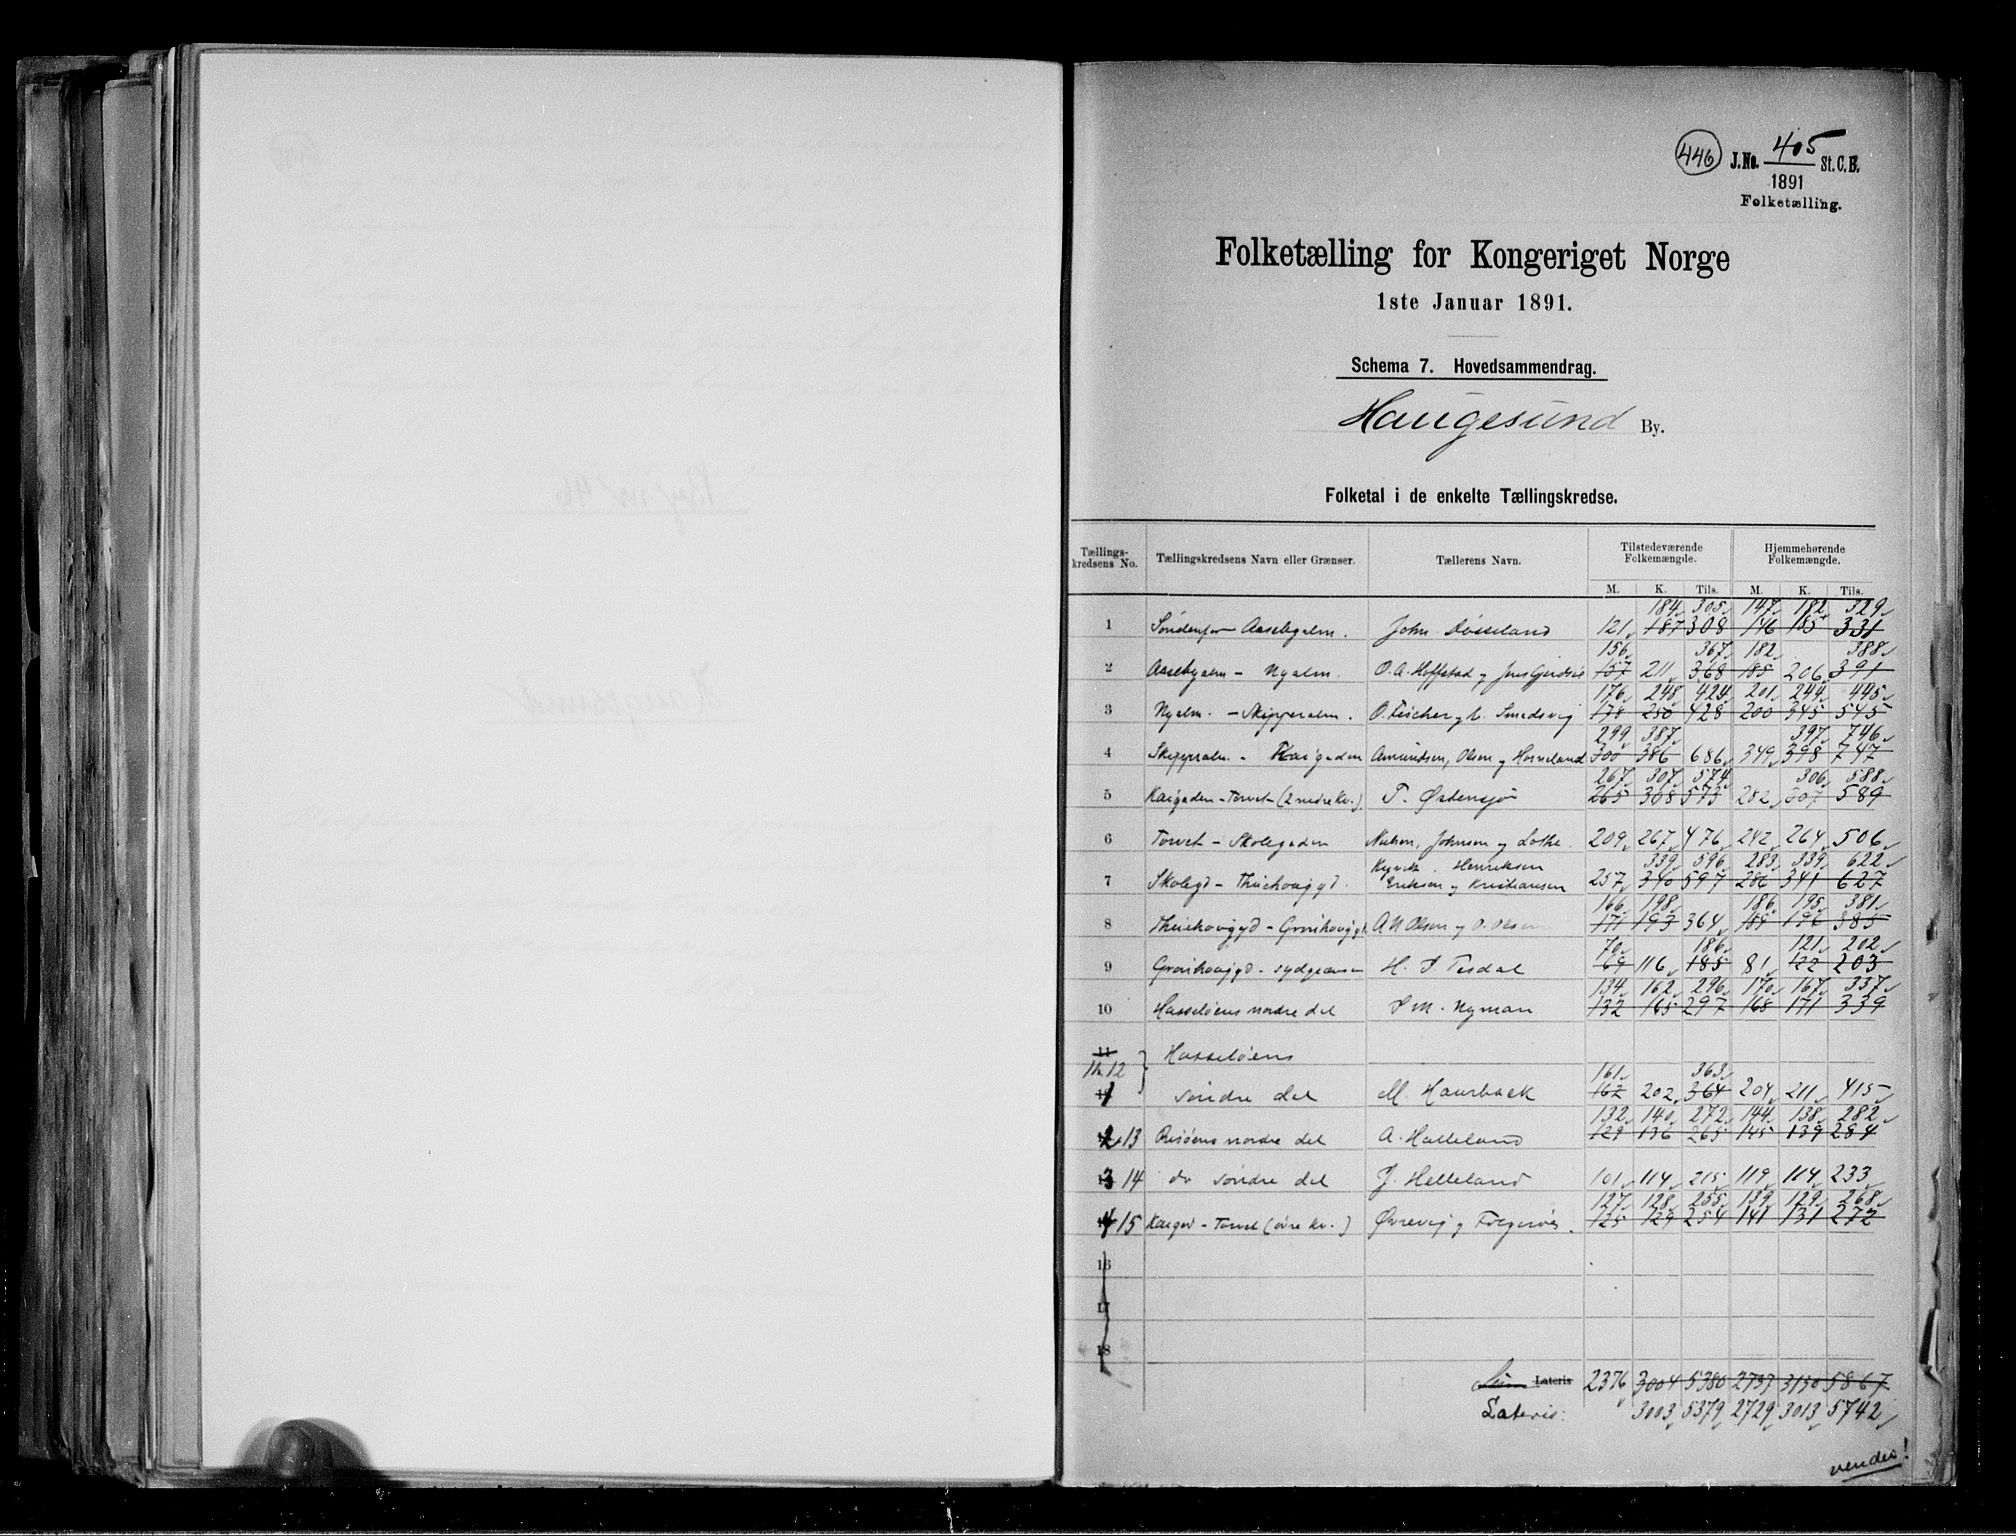 446 J.No. 405 St.C.B.
1891
Folketælling.
Folketælling for Kongeriget Norge
1ste Januar 1891.
Schema 7. Hovedsammendrag.
Haugesund By.
Folketal i de enkelte Tællingskredse.
Tællings-kredsens No. Tællingskredsens Navn eller Grænser. Tællerens Navn. Tilstedeværende Folkemængde. Hjemmehørende Folkemængde.
M. K. Tils. M. K. Tils.
184 305 147 182 329
1 Søndenfor Aasebyalm. John Døsseland 121 187 308 146 185 331
156 367 182 388
2 Aasebyalm - Nyalm. O. A. Hoffstad og Jens 157 211 368 185 206 391
176 248 424 201 244 445
3 Nyalm. - Skipperalm. O. Fischer og L. Smedsvig 178 250 428 200 345 545
299 387 397 746
4 Skipperalm. - Kaigaden Amundsen, Olsen og Horneland 300 386 686 349 398 747
267 307 574 306 588
5 Kaigaden - Torvet (2 nedre Kv.) T. Østensjø 265 308 573 282 307 589
6 Torvet - Skolegaden Nielsen, Johnsen og Lothe. 209 267 476 242 264 506
Kyvik. Henriksen 339 596 283 339 622
7 Skolegd - Eriksen og Kristiansen 257 340 597 286 341 627
166 198 186 195 381
8 A N Olsen og O. Olsen 171 193 364 189 196 385
70 186 121 202
9 - sydgrænsen H. S. Tesdal 69 116 185 81 122 203
134 162 296 170 167 337
10 Hasseløens nordre del S M. Nyman 132 165 297 168 171 339
11 Hasseløens
11.12 161 363
søndre del M. Haurback 162 202 364 204 211 415
132 140 272 144 138 282
13 Risøens nordre del A. Helleland 129 136 265 145 139 284
14 do søndre del J. Helleland 101 114 215 119 114 233
127 128 255 139 129 268
15 Kaigad - Torvet (øvre kv.) Øvrevig og 125 129 254 141 131 272
16
17
18
Lateris 2376 3004 5380 2737 3130 5867
Lateris: 3003 5379 2729 3013 5742
vendes!